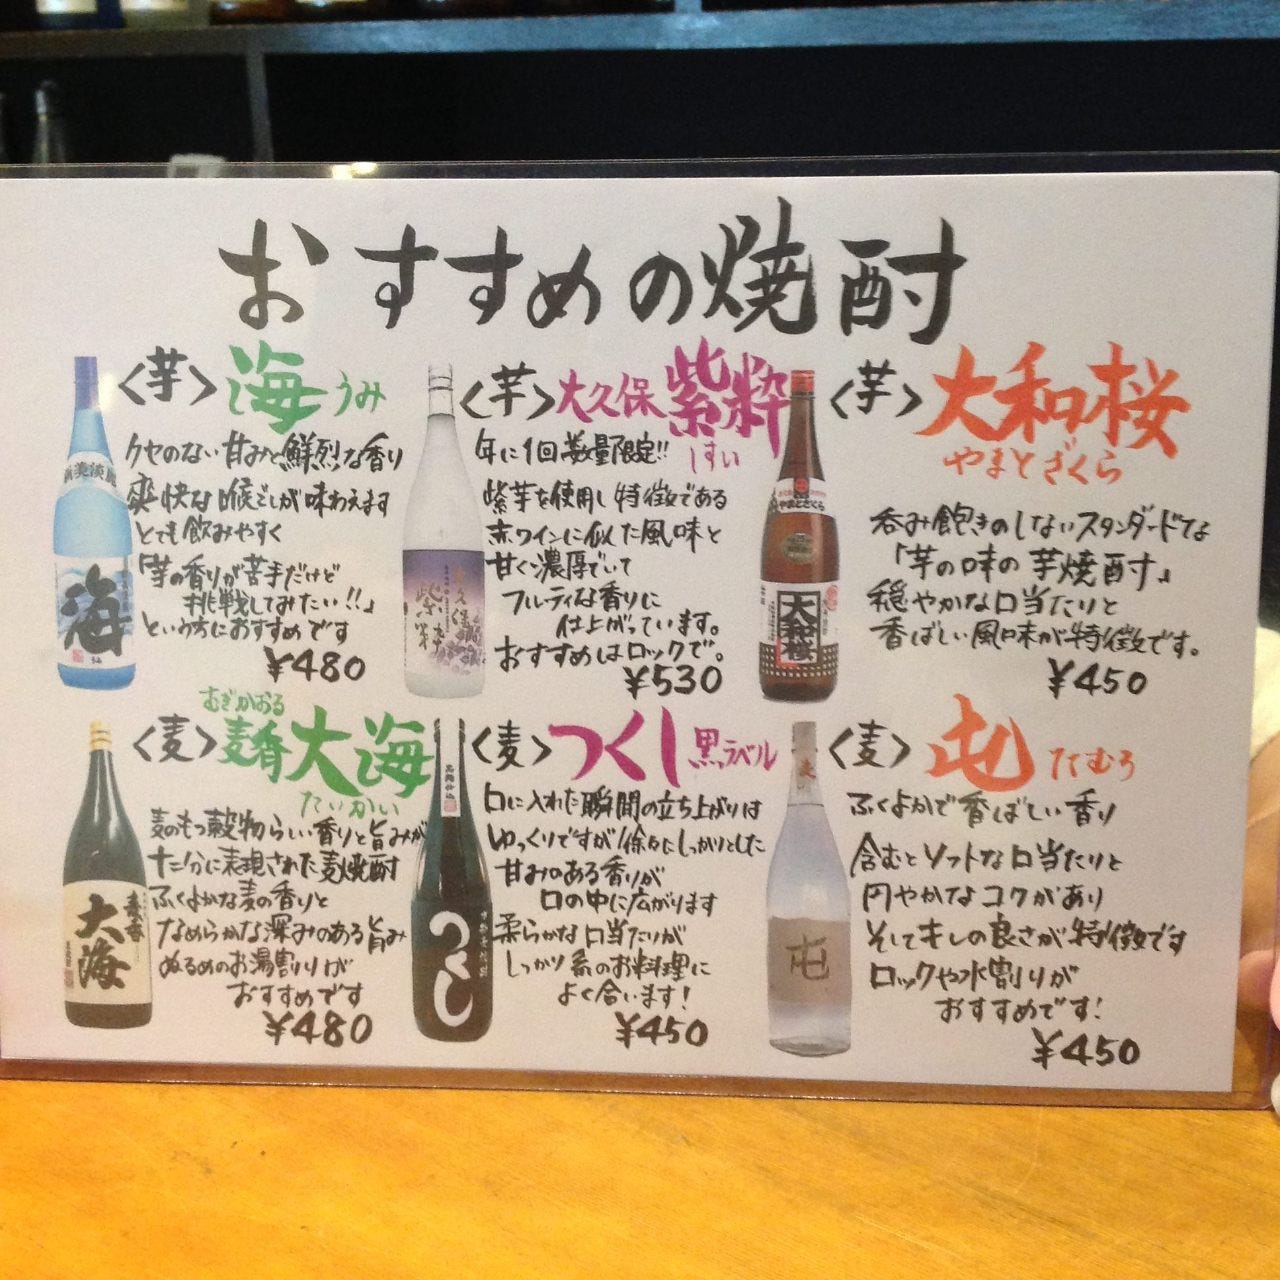 おすすめの焼酎
<芋>海 うみ
クセのない甘みと鮮烈な香り
爽快な喉ごしが味わえます
とても飲みやすく
「芋の香りが苦手だけど
挑戦してみたい!!」
という方におすすめです
¥480
<芋>大久保紫粋
しすい
年に1回数量限定!!
紫芋を使用し特徴である
赤ワインに似た風味と
甘く濃厚でいて
フルーティな香りに
仕上がっています。
おすすめはロックで。
¥530
<芋>大和桜
やまとざくら
呑み飽きのしないスタンダードな
「芋の味の芋焼酎」
穏やかな口当たりと
香ばしい風味が特徴です。
¥450
むぎかおる
<麦>麦香大海
たいかい
麦のもつ穀物らしい香りと旨みが
十二分に表現された麦焼酎
ふくよかな麦の香りと
なめらかな深みのある旨み
ぬるめのお湯割りが
おすすめです
¥480
<麦>つくし黒ラベル
口に入れた瞬間の立ち上がりは
ゆっくりですが徐々にしっかりとした
甘みのある香りが
口の中に広がります
柔らかな口当たりが
しっかり系のお料理に
よく合います!
¥450
<麦>屯 たむろ
ふくよかで香ばしい香り
含むとソフトな口当たりと
円やかなコクがあり
そしてキレの良さが特徴です
ロックや水割りが
おすすめです!
¥450
海
大和桜
やまとざくら
大海
つくし
屯